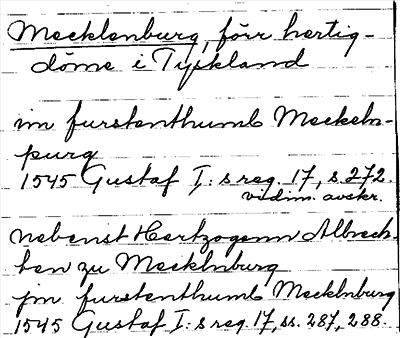 Mecklenburg, förr hertig-
döme i Tyskland
im furstenthumb Meckeln-
purg
1545 Gustaf I:s reg. 17, s. 272.
vidim. avskr.
nebenst Hertzogenn Albrech-
ten zu Mecklnburg
jm furstenthumb Mecklnburg
1545 Gustaf I:s reg. 17, ss. 287, 288.